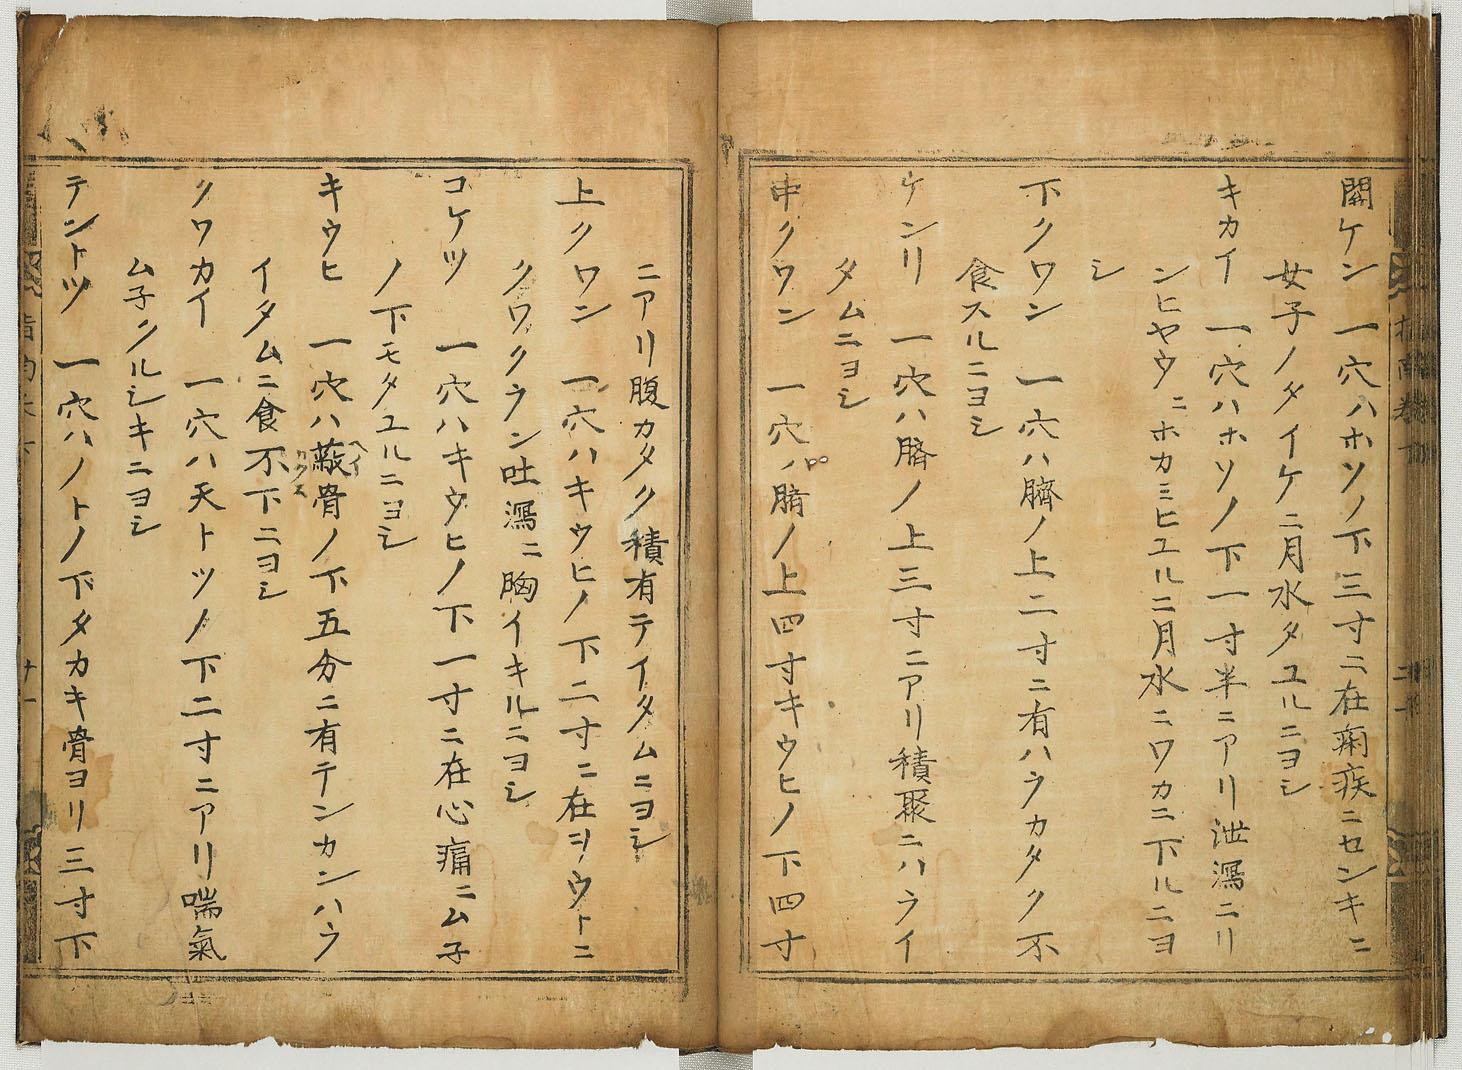 關ケン 一穴ハホソノ下三寸ニ在痢疾ニセンキニ
女子ノタイケニ月水タユルニヨシ
キカイ 一穴ハホソノ下一寸半ニアリ泄瀉ニリ
ンヒヤウニホカミヒユルニ月水ニワカニ下ルニヨ
シ
下クワン 一穴ハ臍ノ上二寸ニ有ハラカタク不
食スルニヨシ
ケンリ 一穴ハ臍ノ上三寸ニアリ積聚ニハライ
タムニヨシ
中クワン 一穴ハ臍ノ上四寸キウヒノ下四寸
ニアリ腹カタク積有テイタムニヨシ
上クワン 一穴ハキウヒノ下二寸ニ在シヨウトニ
クワクラン吐瀉ニ胸イキルニヨシ
コケツ 一穴ハキウヒノ下一寸ニ在心痛ニム子
ノ下モタユルニヨシ
キウヒ 一穴ハ蔽骨ノ下五分ニ有テンカンハラ
イタムニ食不下ニヨシ
クワカイ 一穴ハ天トツノ下二寸ニアリ喘氣
ム子ノルシキニヨシ
テントツ 一穴ハノトノ下タカキ骨ヨリ三寸下